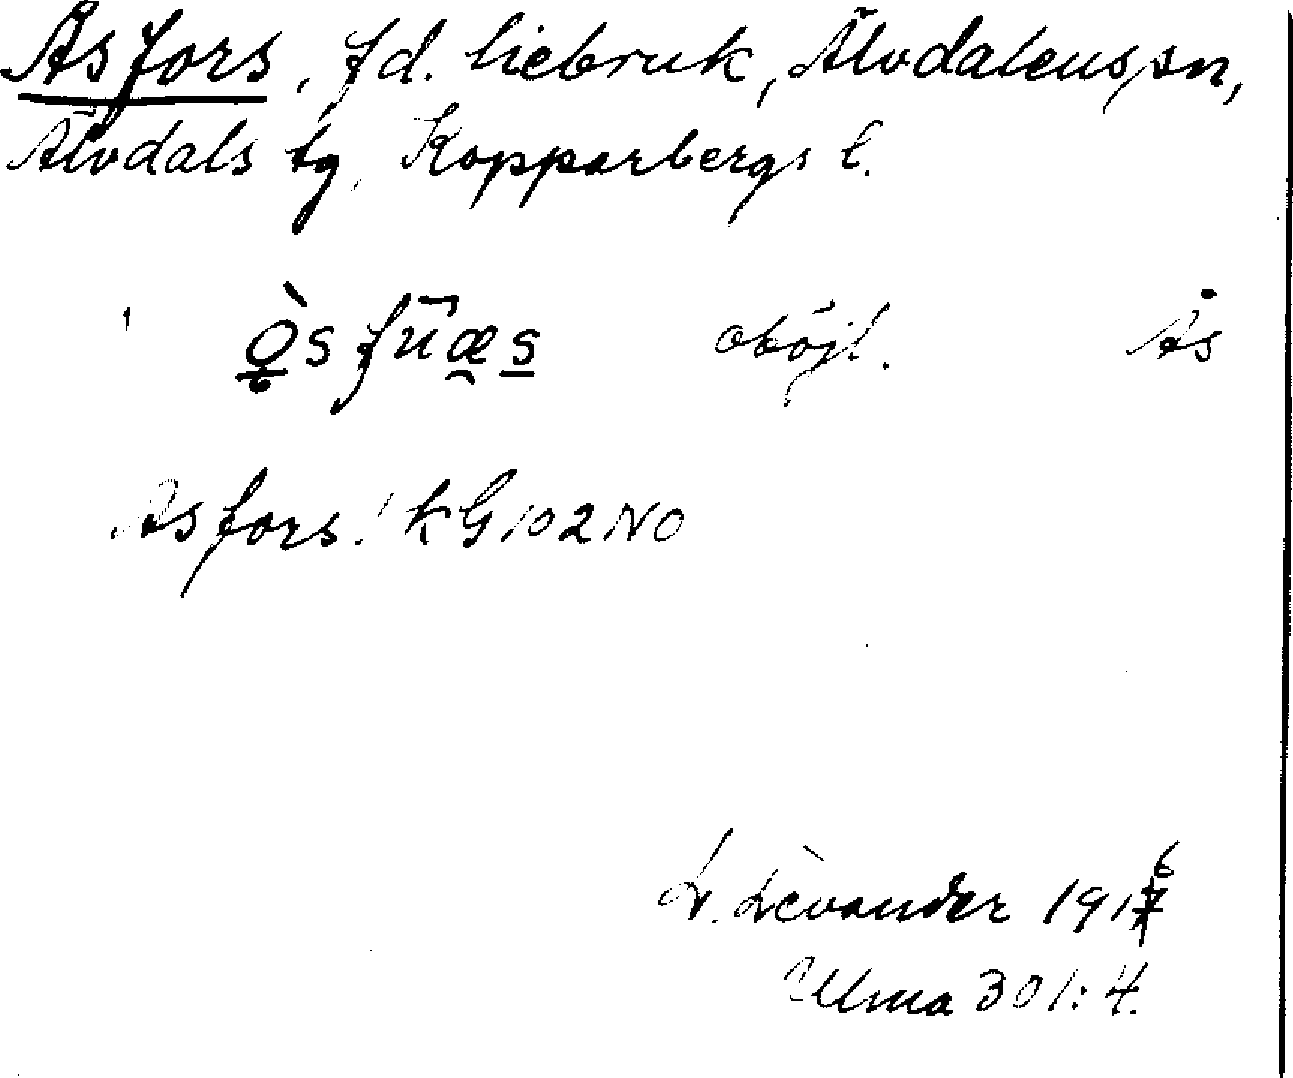 Åsfors, fd. liebruk, Älvdalens sn,
Älvdals tg, Kopparbergs l.
ò̲sfūæ̯s̲ oböjl. Ås
Åsfors! kG102NO
L. Levander 1916
Ulma 301:4.